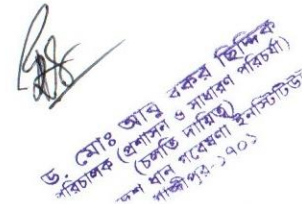 ড. মোঃ আবু বকর ছিদ্দিক
পরিচালক (প্রশাসন ও সাধারণ পরিচর্যা)
(চলতি দায়িত্ব)
ধান গবেষণা ইনস্টিটিউট
গাজীপুর-১৭০১